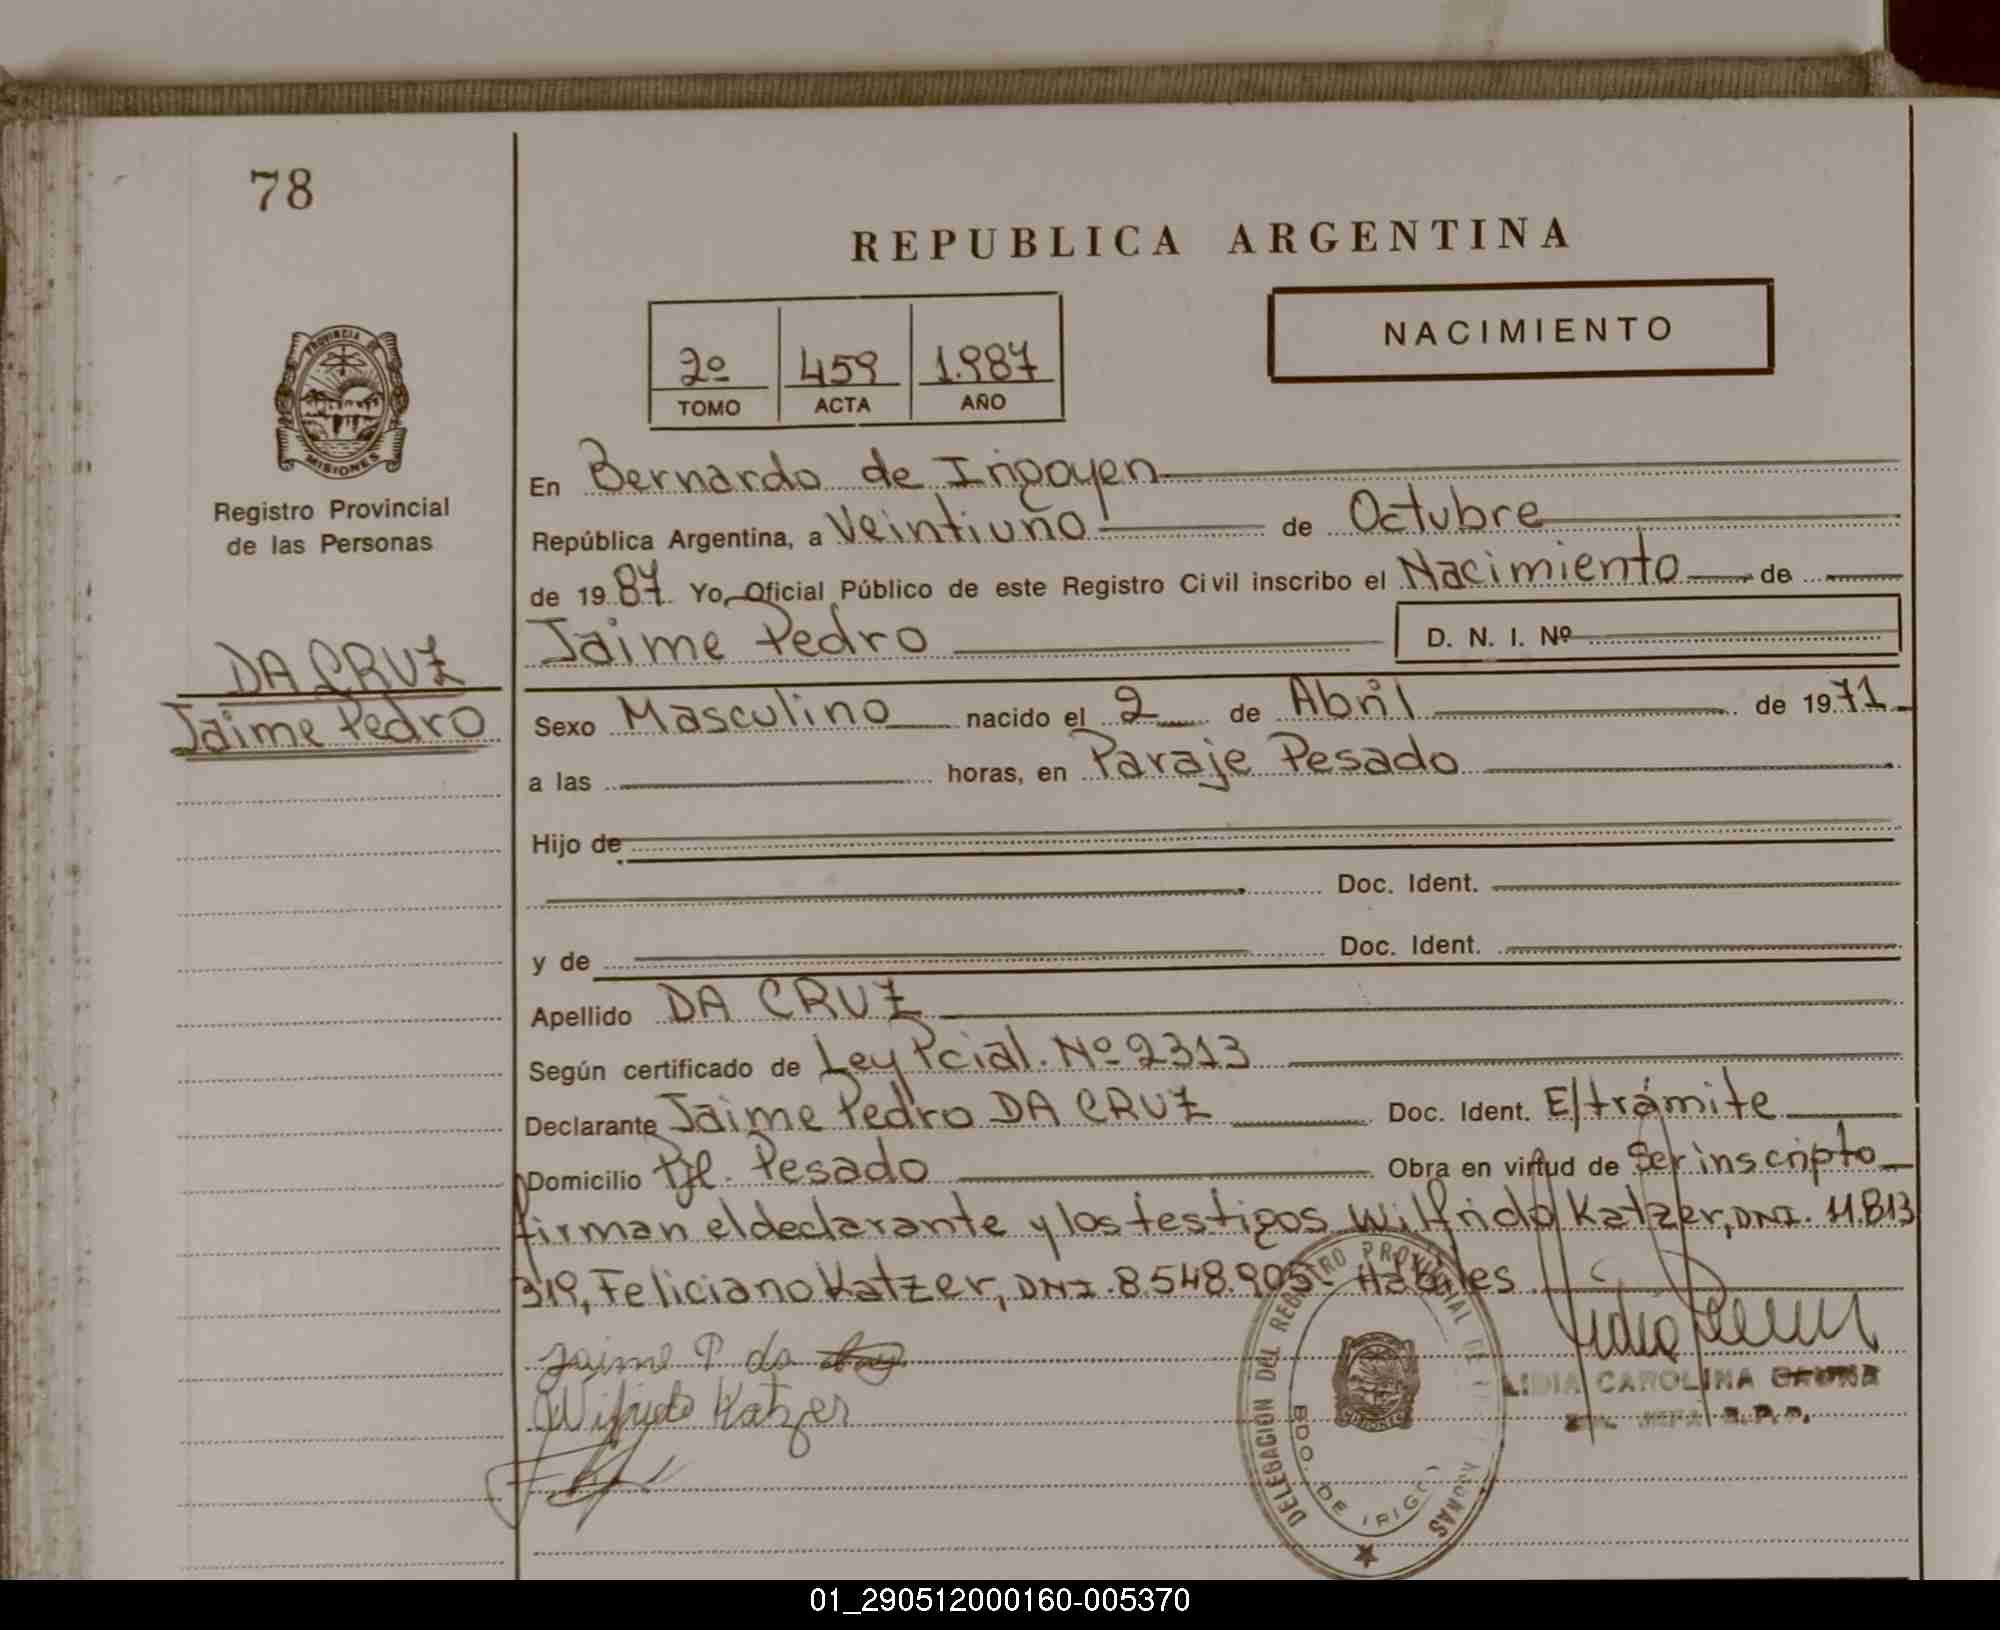 78
REPUBLICA ARGENTINA
NACIMIENTO
2º 459 1.987
TOMO ACTA AÑO
PROVINCIA DE
MISIONES
Registro Provincial
de las Personas
En Bernardo de Irigoyen
República Argentina, a Veintiuno de Octubre
de 1987 Yo, Oficial Público de este Registro Civil inscribo el Nacimiento de
Jaime Pedro D. N. I. Nº
DA CRUZ
Jaime Pedro
Sexo Masculino nacido el 2 de Abril de 1971
a las horas, en Paraje Pesado
Hijo de
Doc. Ident.
y de Doc. Ident.
Apellido DA CRUZ
Según certificado de Ley Pcial. Nº 2313
Declarante Jaime Pedro DA CRUZ Doc. Ident. E/trámite
Domicilio Pje. Pesado Obra en virtud de Ser inscripto
firman el declarante y los testigos Wilfrido Katzer, DNI. 11.813
319, Feliciano Katzer, DNI. 8.548.905- Hábiles
Jaime P da
Wilfrido Katzer
LIDIA CAROLINA
R.P.P.
DELEGACION DEL REGISTRO PROVINCIAL DE PERSONAS
BDO. DE IRIGO
01_290512000160-005370